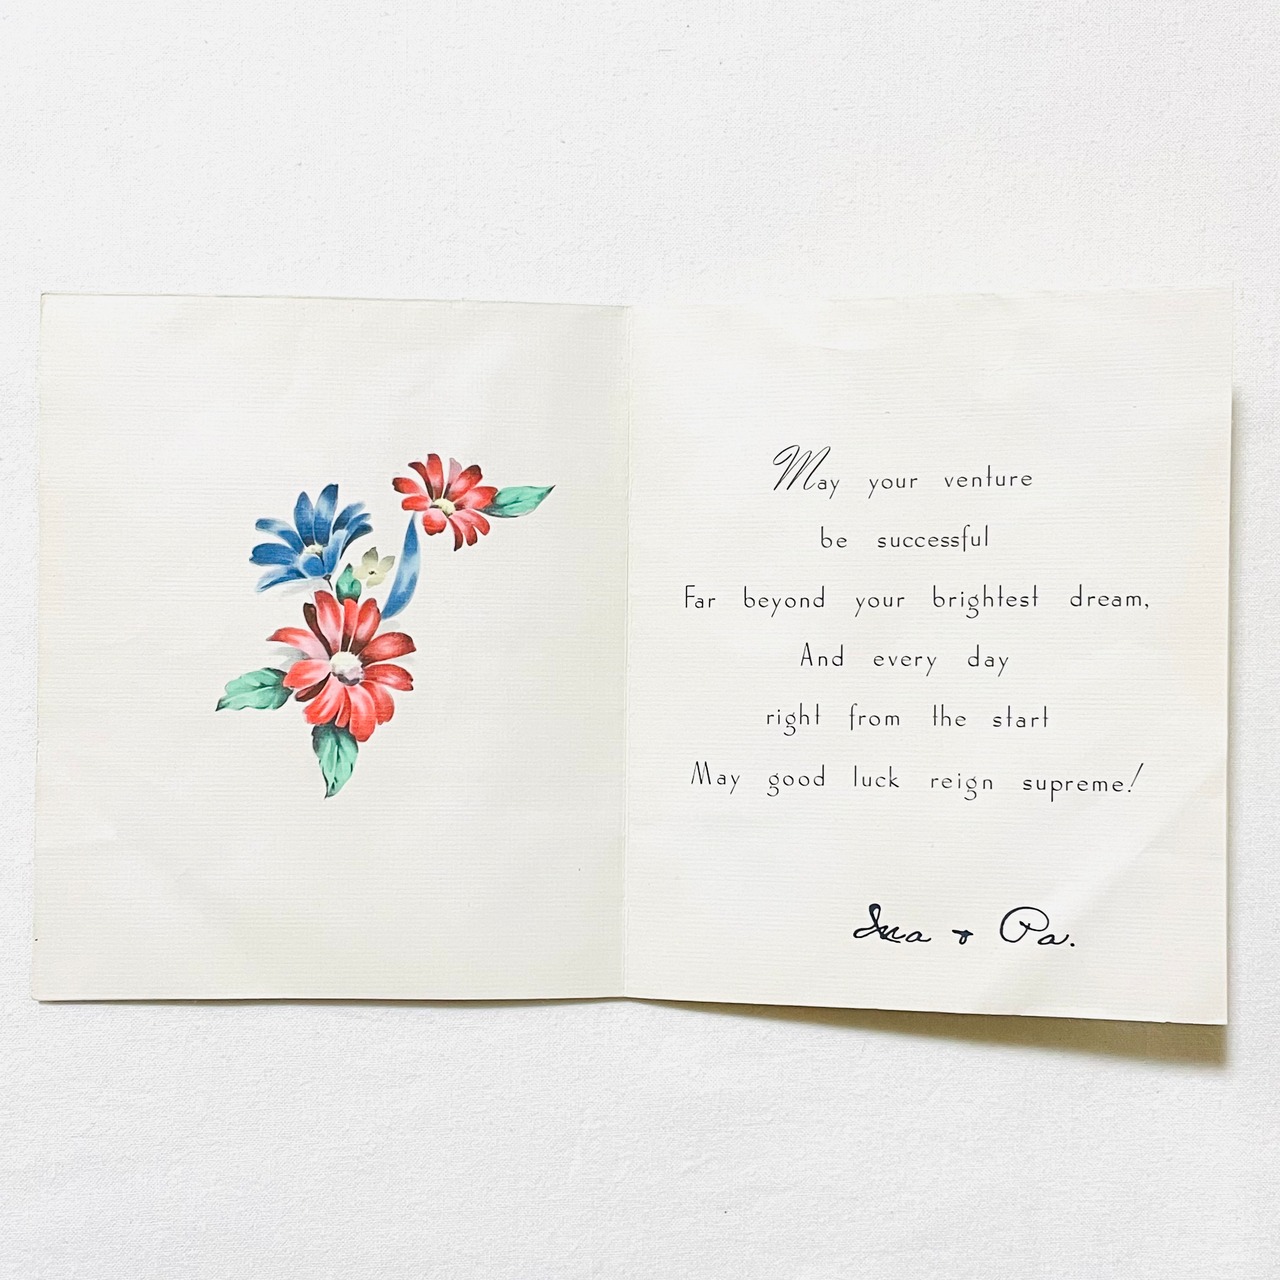 May your venture
be successful
Far beyond your brightest dream,
And every day
right from the start
May good luck reign supreme!
Ina & Pa.